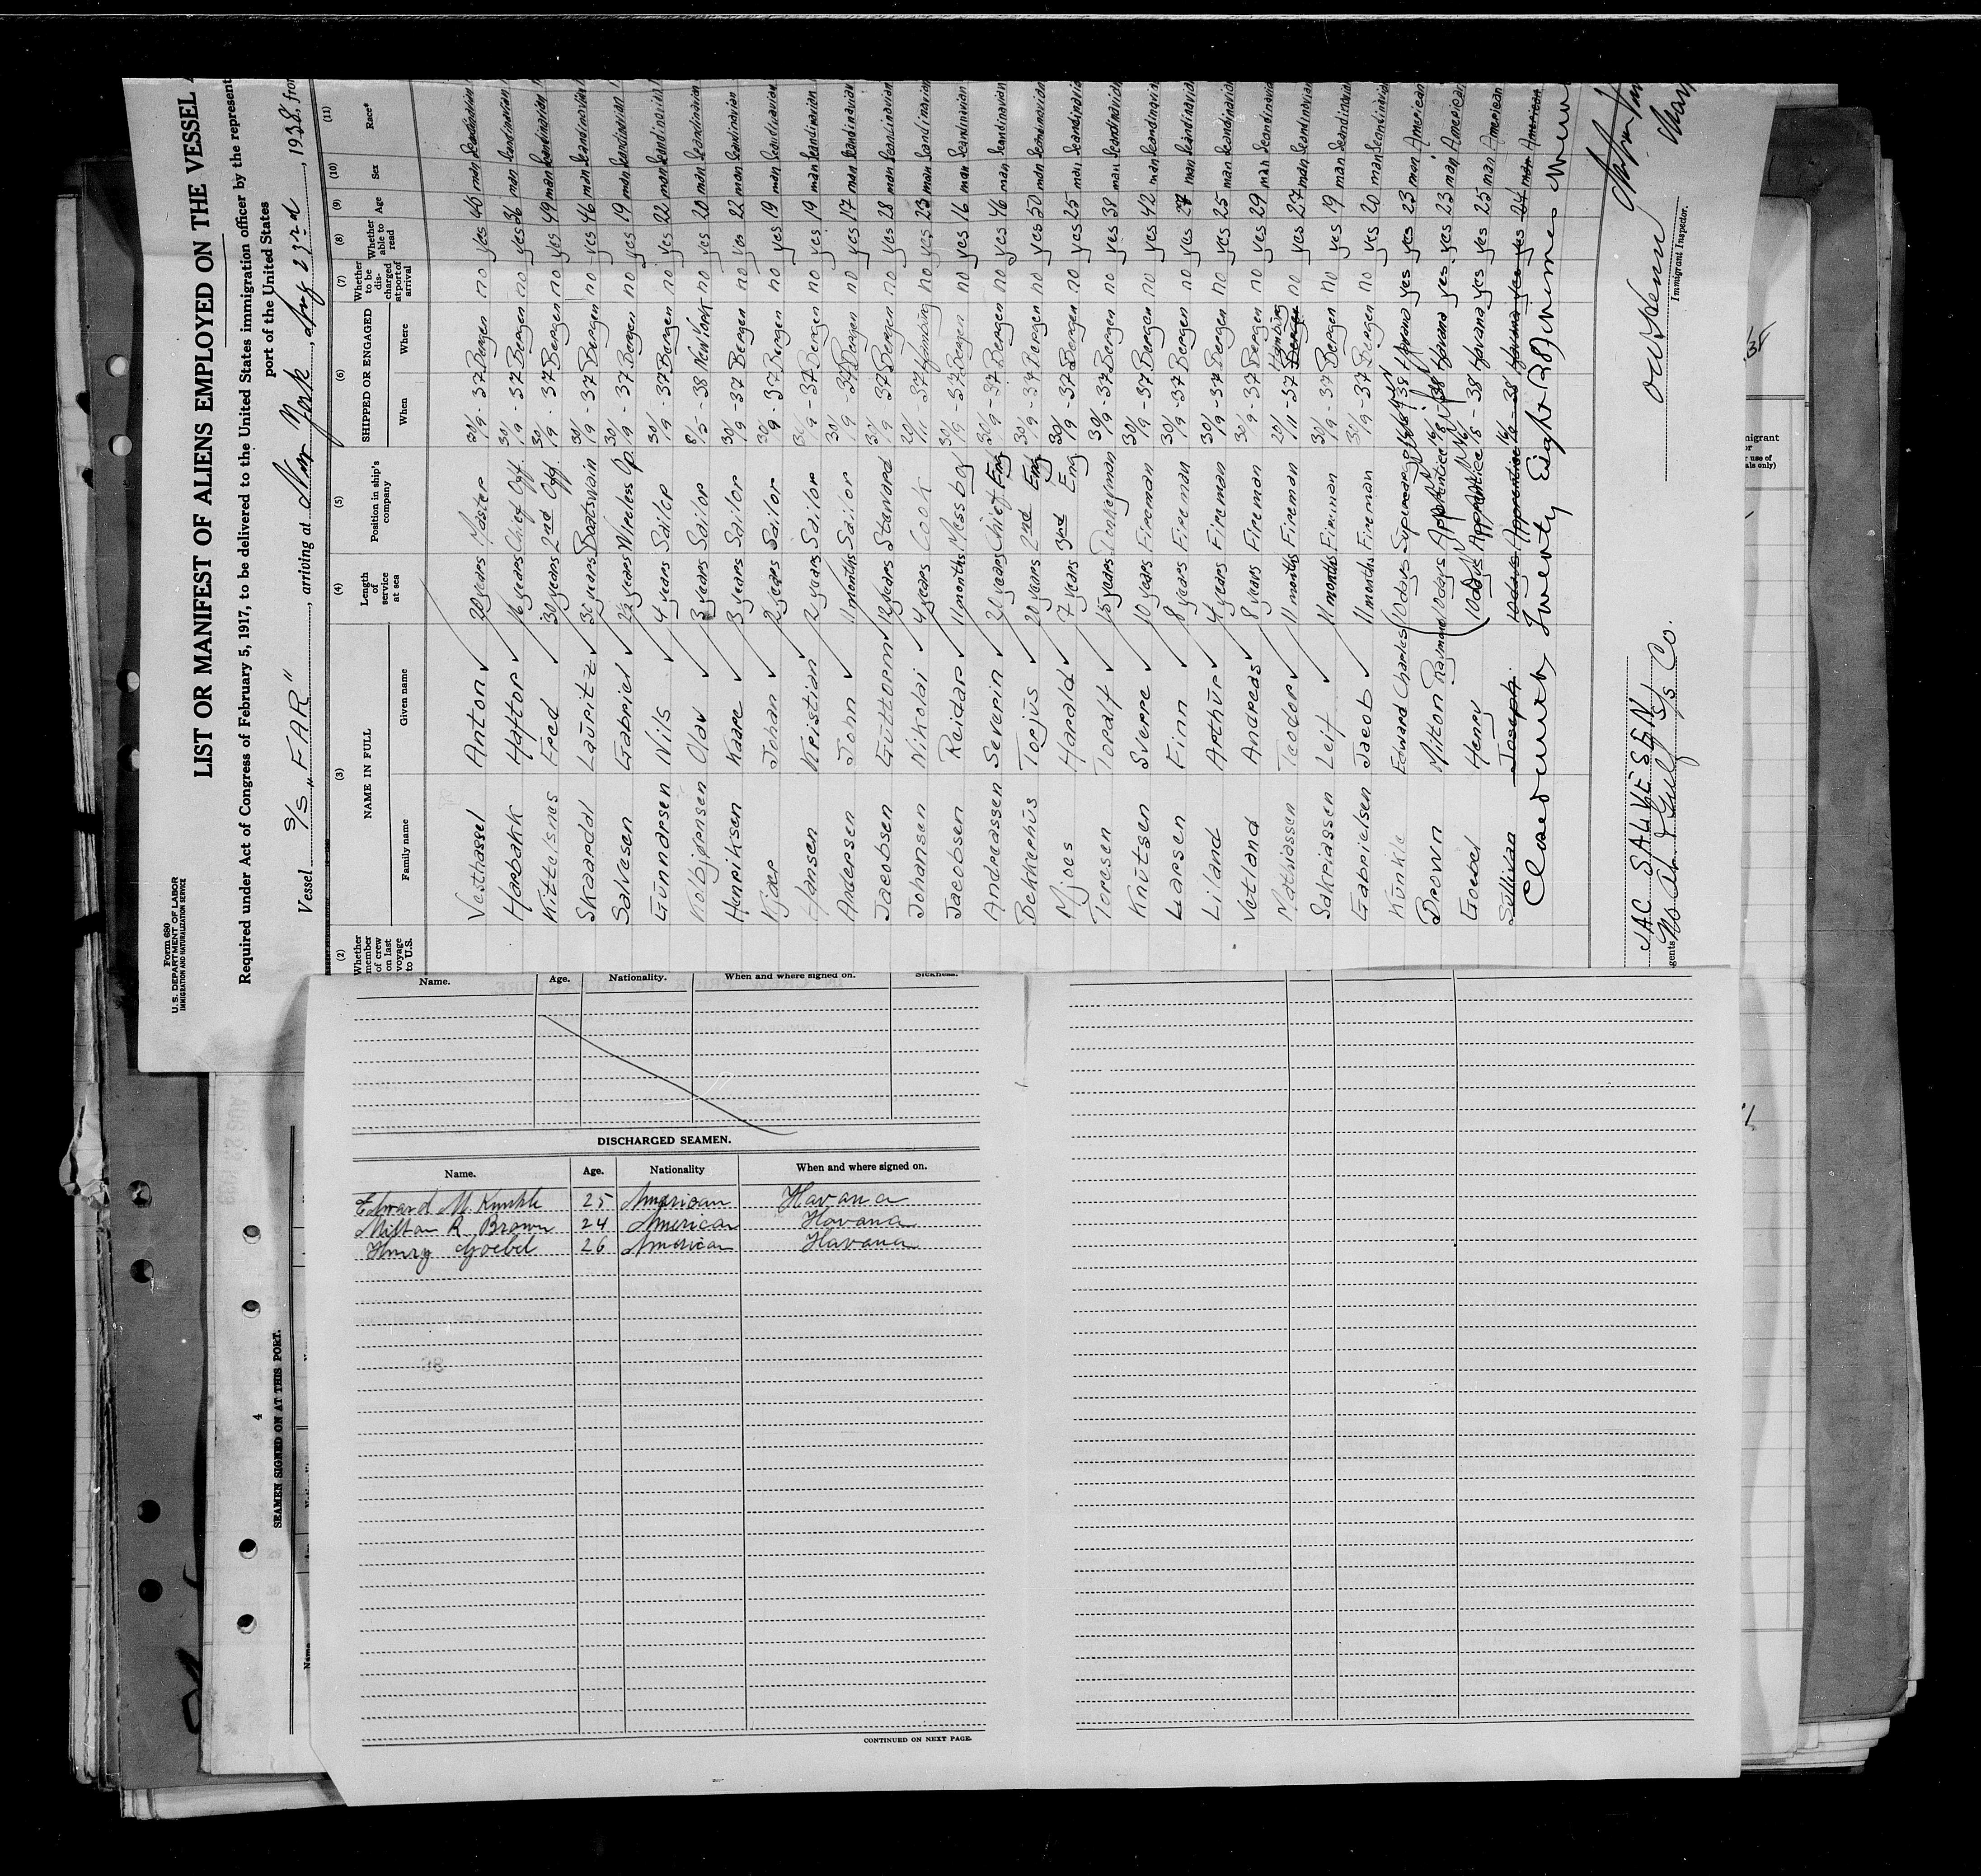 Form 680
U. S. DEPARTMENT OF LABOR
IMMIGRATION AND NATURALIZATION SERVICE
LIST OR MANIFEST OF ALIENS EMPLOYED ON THE VESSEL
Required under Act of Congress of February 5, 1917, to be delivered to the United States immigration officer by the represent
port of the United States
Vessel S/S „FAR", arriving at New York, Aug 23rd, 1938, from
(2) (3) (4) (5) (6) (7) (8) (9) (10) (11)
Whether member of crew on last voyage to U.S. NAME IN FULL Family name Given name Length of service at sea Position in ship's company SHIPPED OR ENGAGED When Where Whether to be discharged at port of arrival Whether able to read Age Sex Race*
Vesthassel Anton 20 years Master 30/9-37 Bergen no yes 40 man Scandinavian
Harbakk Haftor 16 years Chief Off. 30/9-37 Bergen no yes 36 man Scandinavian
Kittelsnes Fred 30 years 2nd Off. 30/9-37 Bergen no yes 49 man Scandinavian
Skaardal Lauritz 30 years Boatswain 30/9-37 Bergen no yes 46 man Scandinavian
Salvesen Gabriel 2½ years Wireless Op. 30/9-37 Bergen no yes 19 man Scandinavian
Gunnarsen Nils 4 years Sailor 30/9-37 Bergen no yes 22 man Scandinavian
Kolbjørnsen Olav 3 years Sailor 8/5-38 New York no yes 20 man Scandinavian
Henriksen Kaare 3 years Sailor 30/9-37 Bergen no yes 22 man Scandinavian
Kjær Johan 2 years Sailor 30/9-37 Bergen no yes 19 man Scandinavian
Hansen Kristian 2 years Sailor 30/9-37 Bergen no yes 19 man Scandinavian
Andersen John 11 months Sailor 30/9-37 Bergen no yes 17 man Scandinavian
Jacobsen Guttorm 12 years Steward 30/9-37 Bergen no yes 28 man Scandinavian
Johansen Nikolai 4 years Cook 20/11-37 Hamburg no yes 23 man Scandinavian
Jacobsen Reidar 11 months Messboy 30/9-37 Bergen no yes 16 man Scandinavian
Andreassen Severin 20 years Chief Eng. 30/9-37 Bergen no yes 46 man Scandinavian
Bekkerhus Torjus 20 years 2nd Eng. 30/9-37 Bergen no yes 50 man Scandinavian
Mjoes Harald 7 years 3rd Eng. 30/9-37 Bergen no yes 25 man Scandinavian
Toresen Toralf 15 years Donkeyman 30/9-37 Bergen no yes 38 man Scandinavian
Knutsen Sverre 10 years Fireman 30/9-37 Bergen no yes 42 man Scandinavian
Larsen Finn 8 years Fireman 30/9-37 Bergen no yes 27 man Scandinavian
Liland Arthur 4 years Fireman 30/9-37 Bergen no yes 25 man Scandinavian
Vetland Andreas 8 years Fireman 30/9-37 Bergen no yes 29 man Scandinavian
Mathiassen Teodor 11 months Fireman 20/11-37 Bergen Hamburg no yes 27 man Scandinavian
Sakriassen Leif 11 months Fireman 30/9-37 Bergen no yes 19 man Scandinavian
Gabrielsen Jacob 11 months Fireman 30/9-37 Bergen no yes 20 man Scandinavian
Kunkle Edward Charles 10 days 38 Havana yes yes 23 man American
Brown Milton Raymond 10 days Apprentice 38 Havana yes yes 23 man American
Goebel Henry 10 days Apprentice 38 Havana yes yes 25 man American
Sullivan Joseph 10 days Apprentice 38 Havana yes yes 24 man American
Closed with Twenty Eight (28)
JAC SALVESEN
S/S Co.
Immigrant Inspector.
Name. Age. Nationality. When and where signed on. Sickness.
DISCHARGED SEAMEN.
Name. Age. Nationality When and where signed on.
Edward M. Kunkle 25 American Havana
Milton R. Brown 24 American Havana
Henry Goebel 26 American Havana
CONTINUED ON NEXT PAGE.
4
SEAMEN SIGNED ON AT THIS PORT.